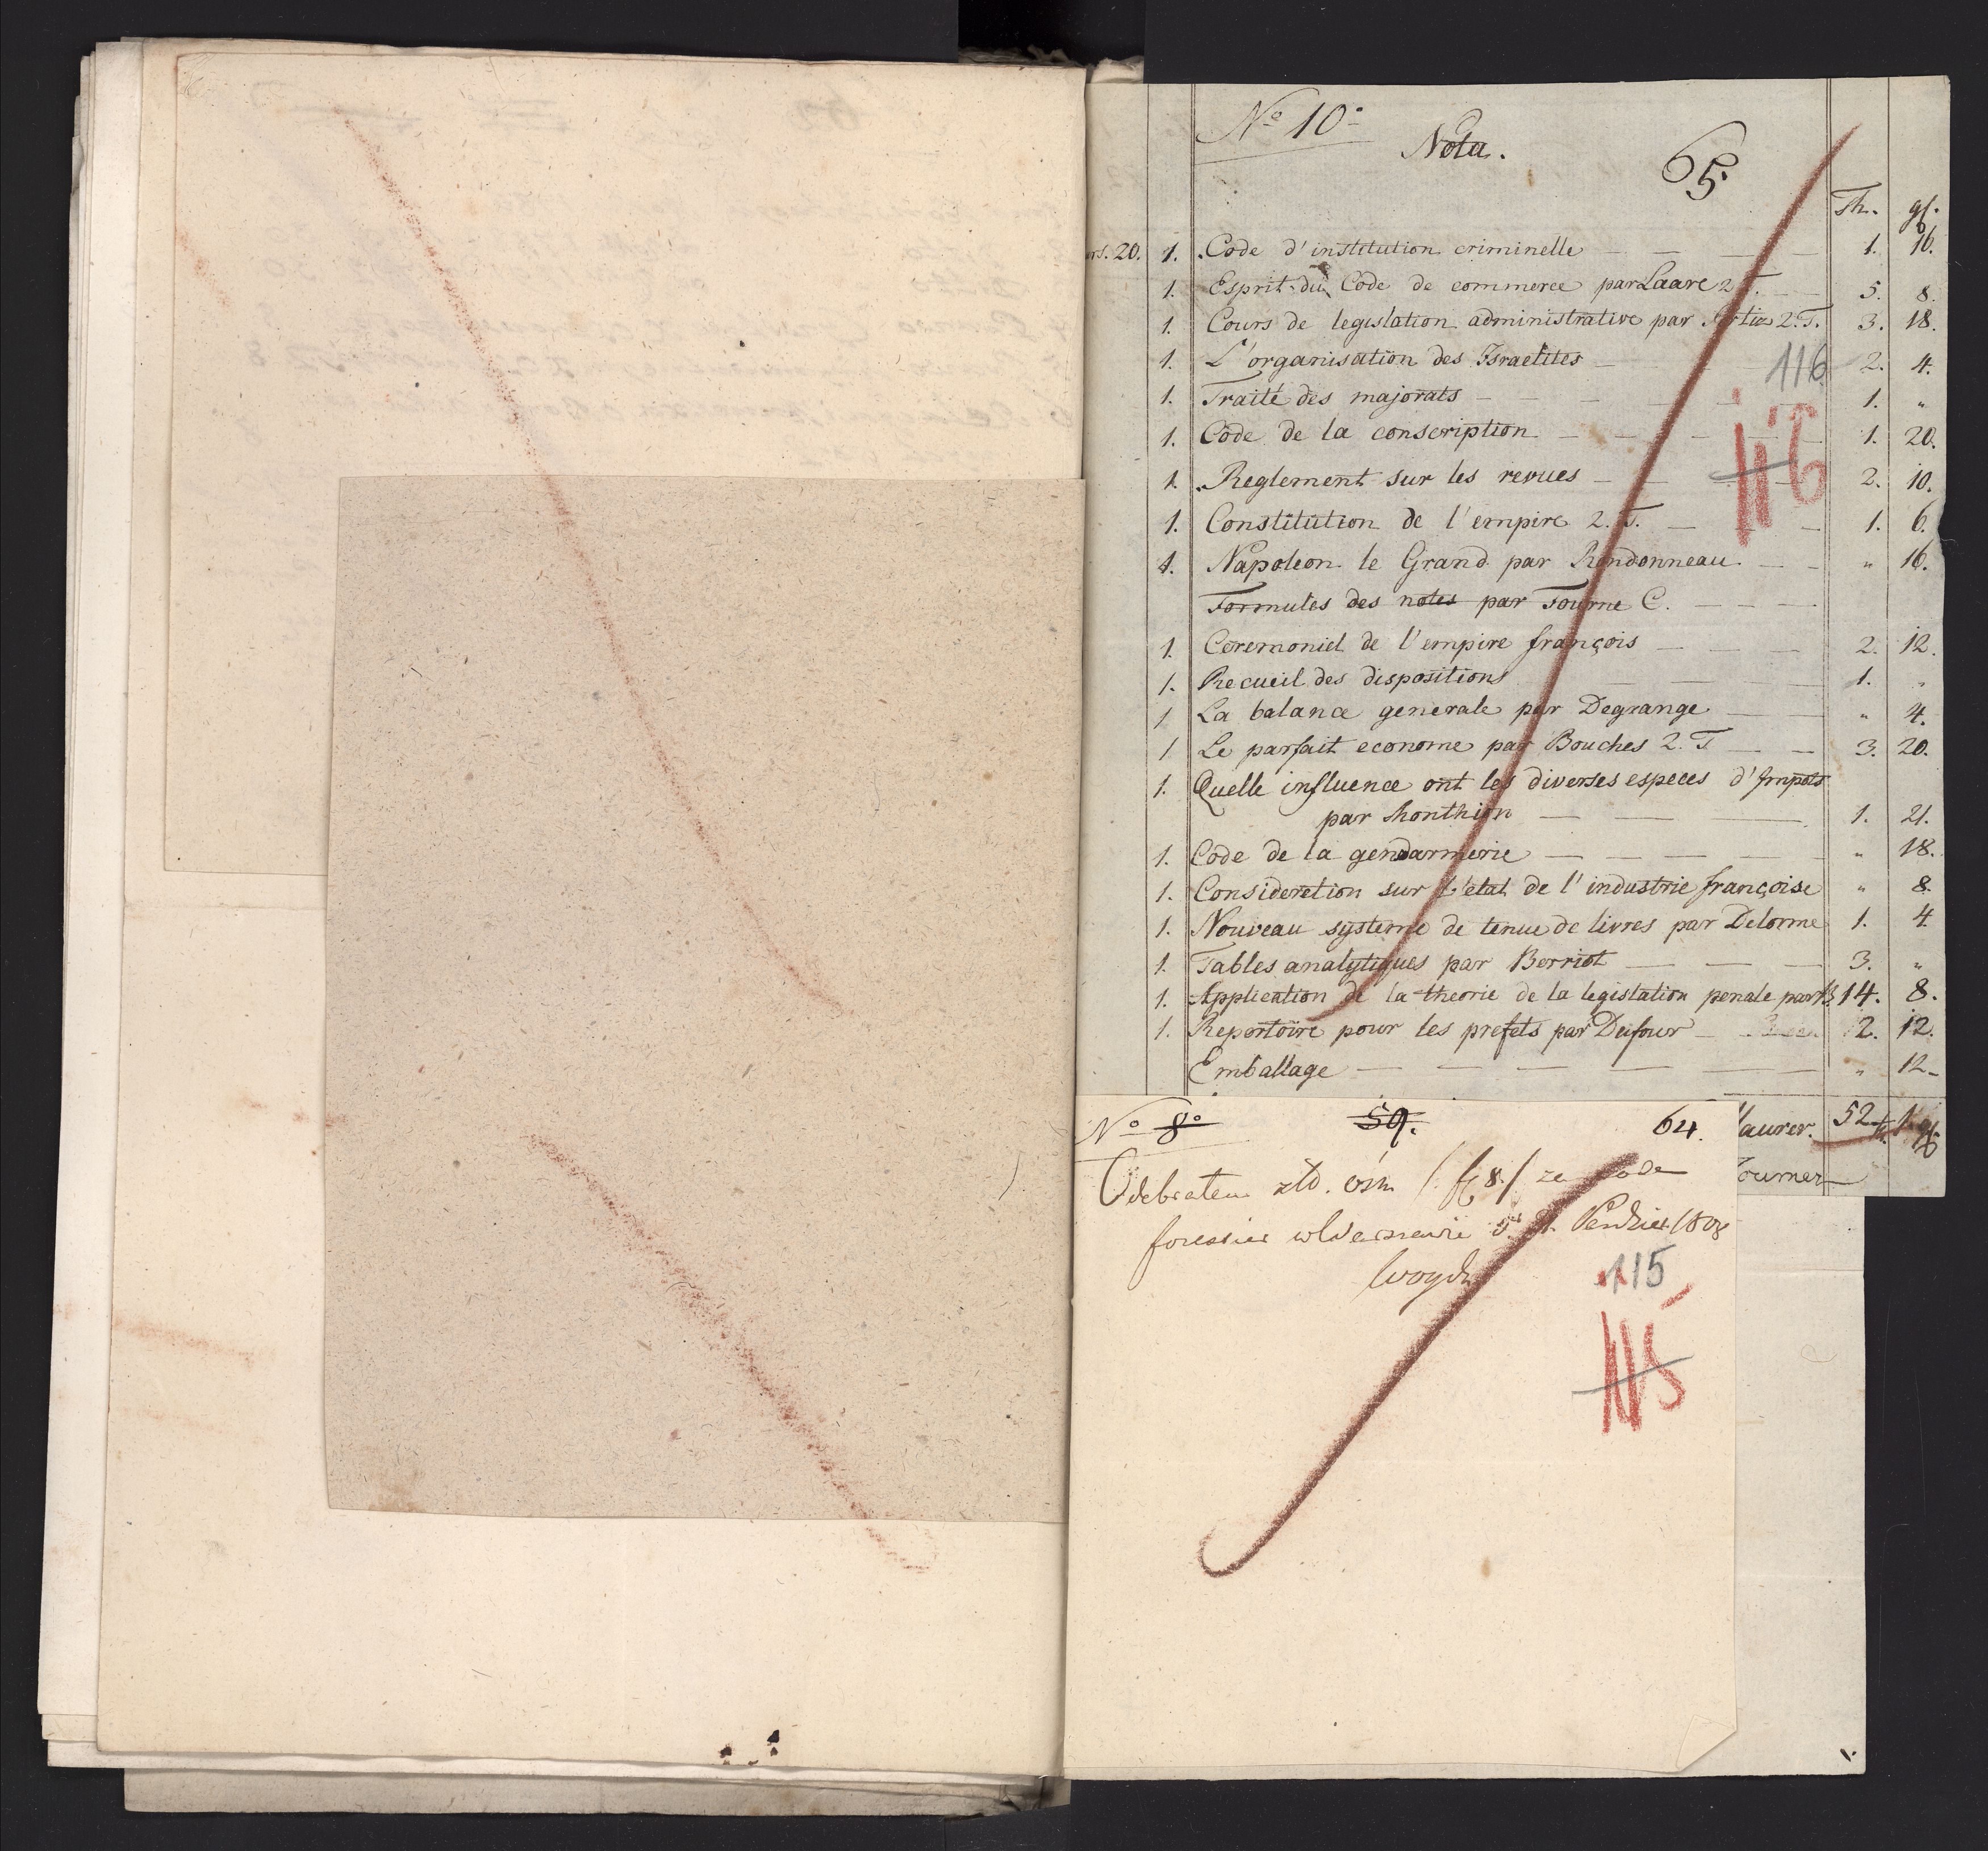 Nº 10º
Nota.
65.
Th. gf.
rs. 20. 1. Code d'institution criminelle — — — 1. 16.
1. Esprit du Code de commerce par Laare 2 T. — 5. 8.
1. Cours de legislation administrative par 2. T. 3. 18.
1. L'organisation des Israelites — 2. 4.
116
1. Traité des majorats — — — — 1. "
1. Code de la conscription — — — — 1. 20.
116
1. Reglement sur les revues — — 2. 10.
1. Constitution de l'empire 2. T. — — 1. 6.
1. Napoleon le Grand par Rondonneau — — " 16.
Formules des notes par Tourne C. — — —
1. Ceremoniel de l'empire françois — — — 2. 12.
1. Recueil des dispositions — — — 1. "
1 La balance generale par Degrange — — " 4.
1 Le parfait econome par Bouches 2. T — — 3. 20.
1. Quelle influence ont les diverses especes d'Impots
par Monthion — — — 1. 21.
1. Code de la gendarmerie — — — — " 18.
1. Consideration sur l'etat de l'industrie françoise " 8.
1. Nouveau systeme de tenue de livres par Delorme 1. 4.
1. Tables analytiques par Berriot — — — 3. "
1. Application de la theorie de la legislation penale par 14. 8.
1. Repertoire pour les prefets par Dufour — 2. 12.
Emballage — — — — — " 12-
Maurer. 52 th. 1 gf.
Tourner
Nº 8º
59.
64.
Odebrałem złd. osm /: f 8 / za code
forestier w Warszawie d. Paździer 1808
Woyda
115
115